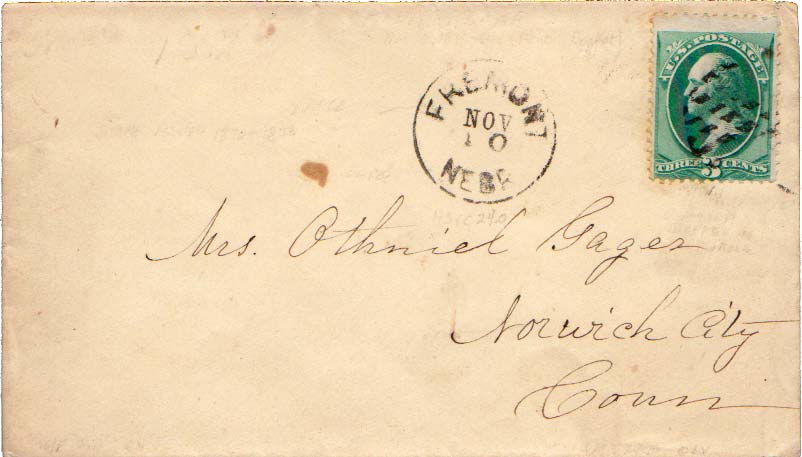 U.S. POSTAGE
THREE 3 CENTS
FREMONT
NOV
10
NEBR
Mrs. Othniel Gager
Norwich City
Conn